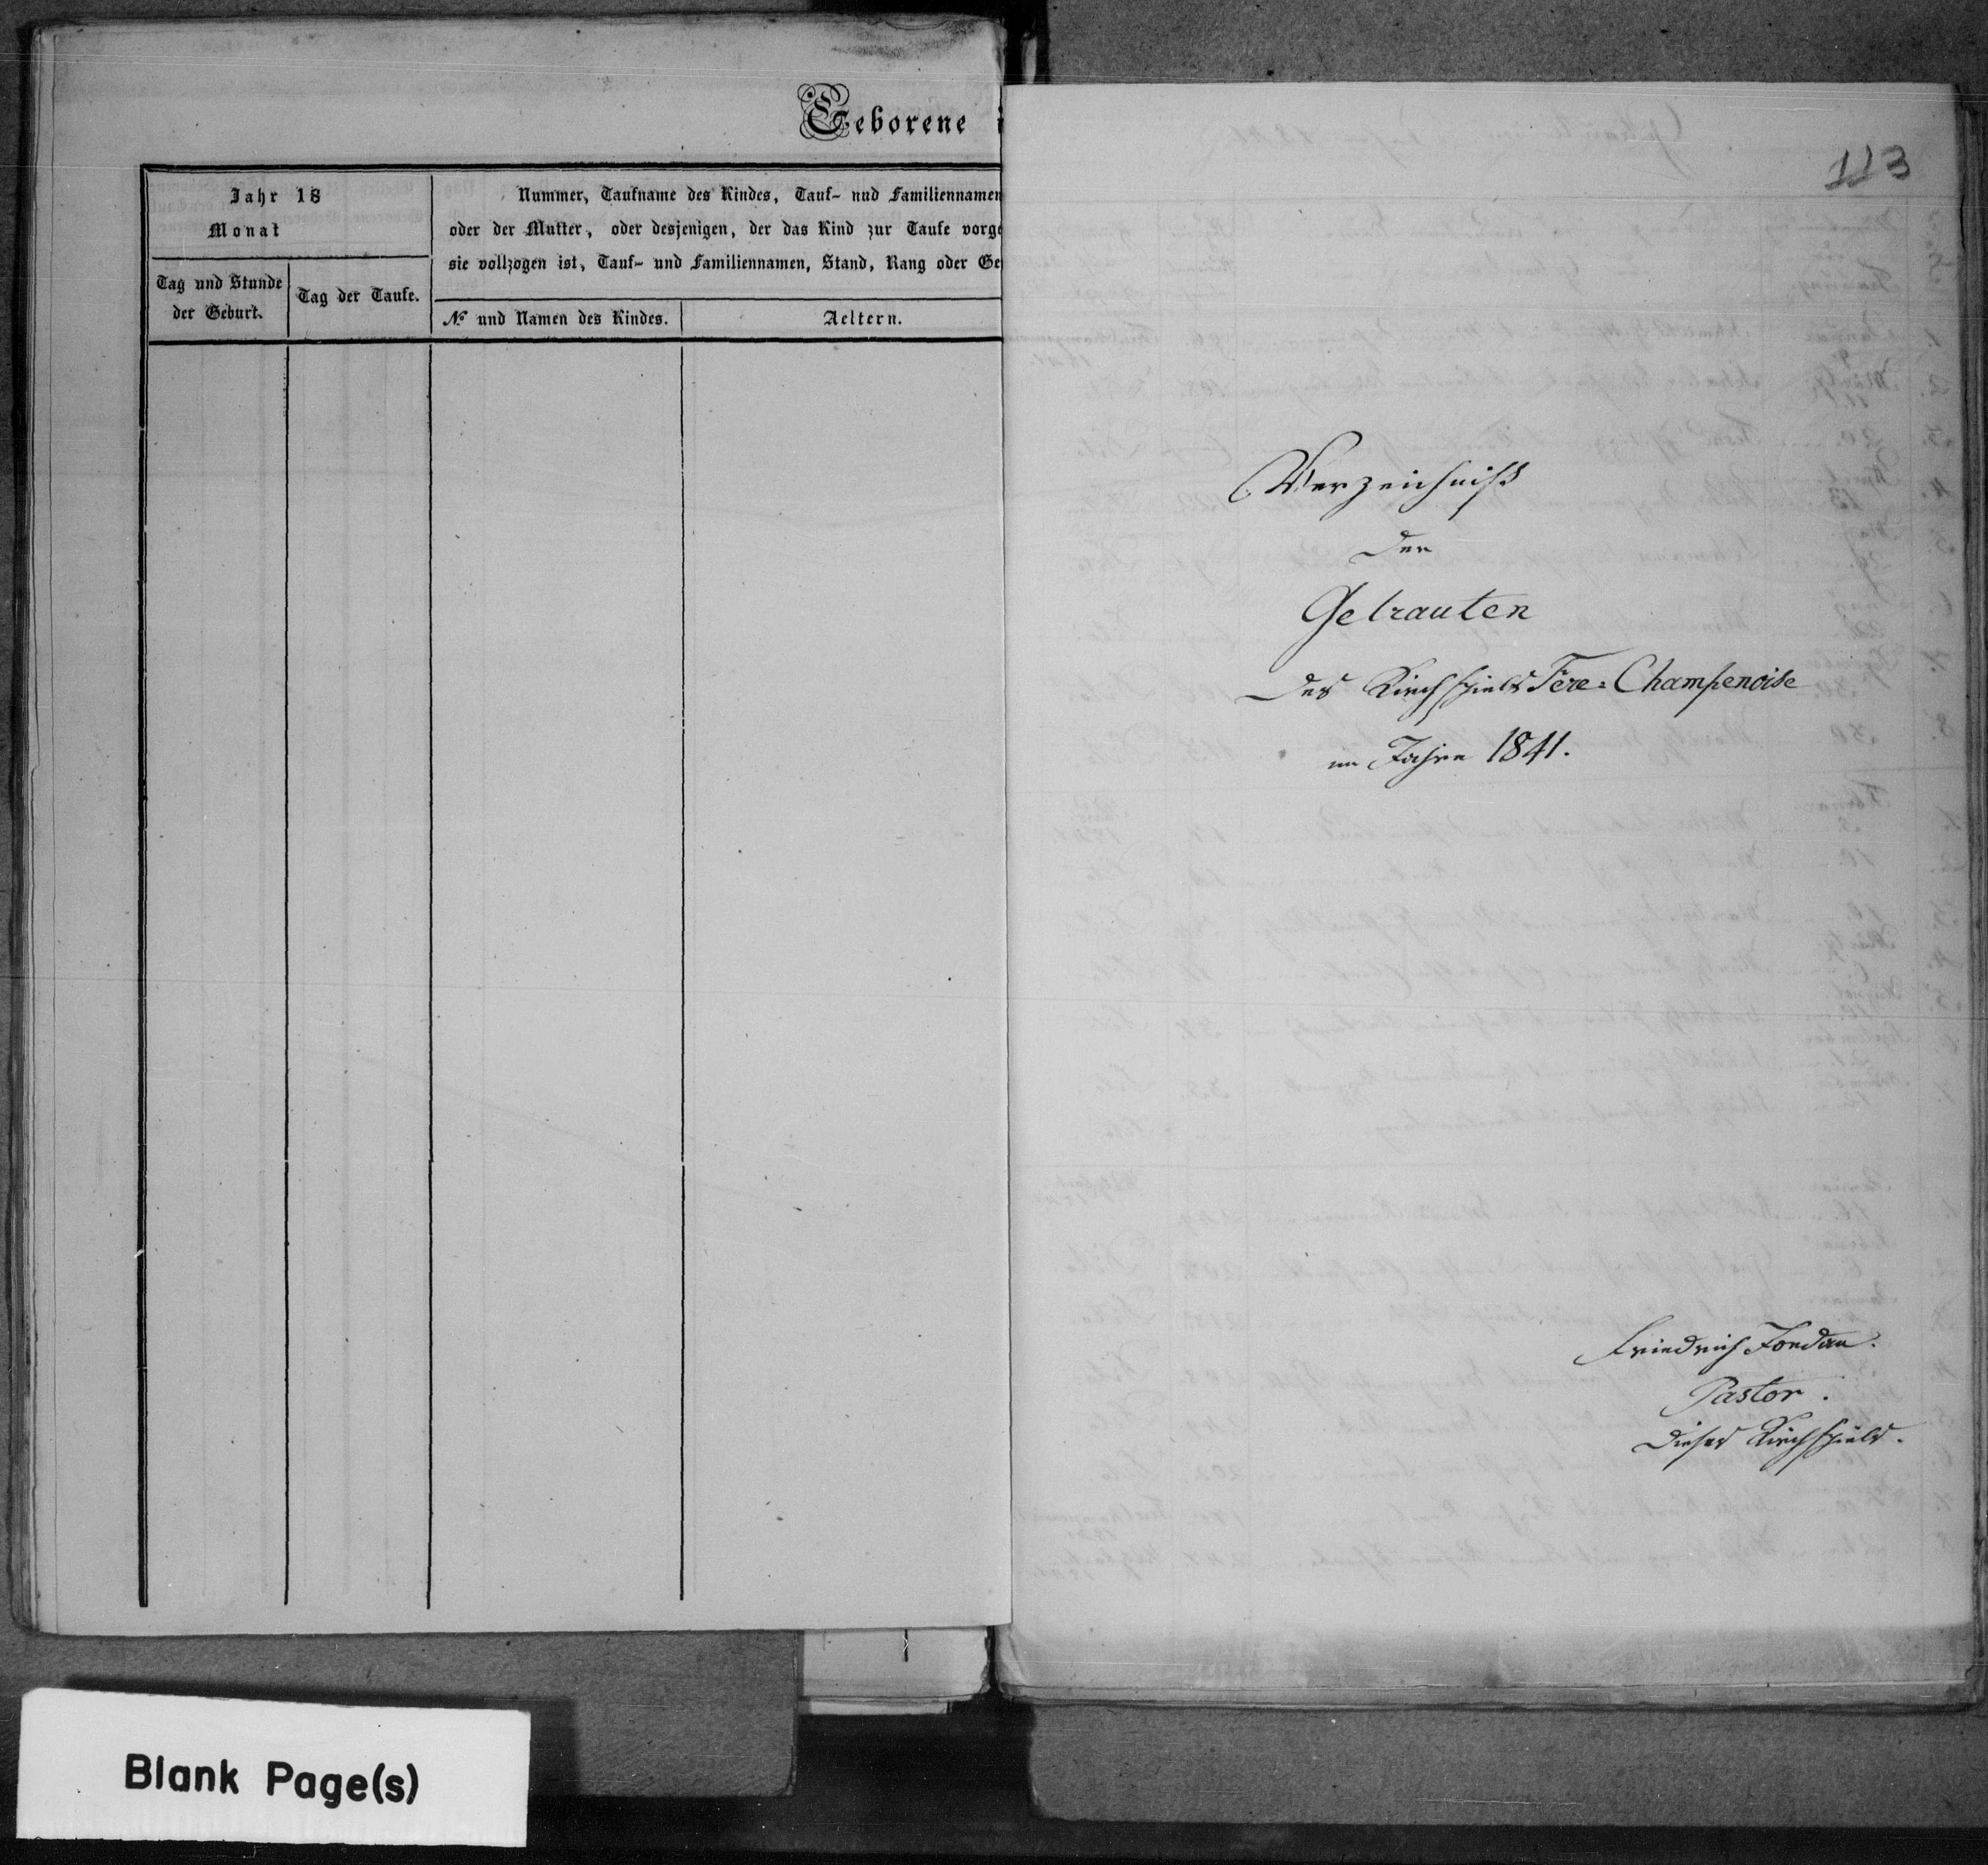 Geborene
Jahr 18
Monat
Tag und Stunde
der Geburt.
Tag der Taufe.
Nummer, Taufname des Kindes, Tauf- und Familiennamen
oder der Mutter, oder desjenigen, der das Kind zur Taufe vorge
sie vollzogen ist, Tauf- und Familiennamen, Stand, Rang oder Ge
№ und Namen des Kindes.
Aeltern.
113
Verzeichniß
der
Getrauten
des Kirchspiels Fère-Champenoise
im Jahre 1841.
Friedrich
Pastor.
dieses Kirchspiels.
Blank Page(s)